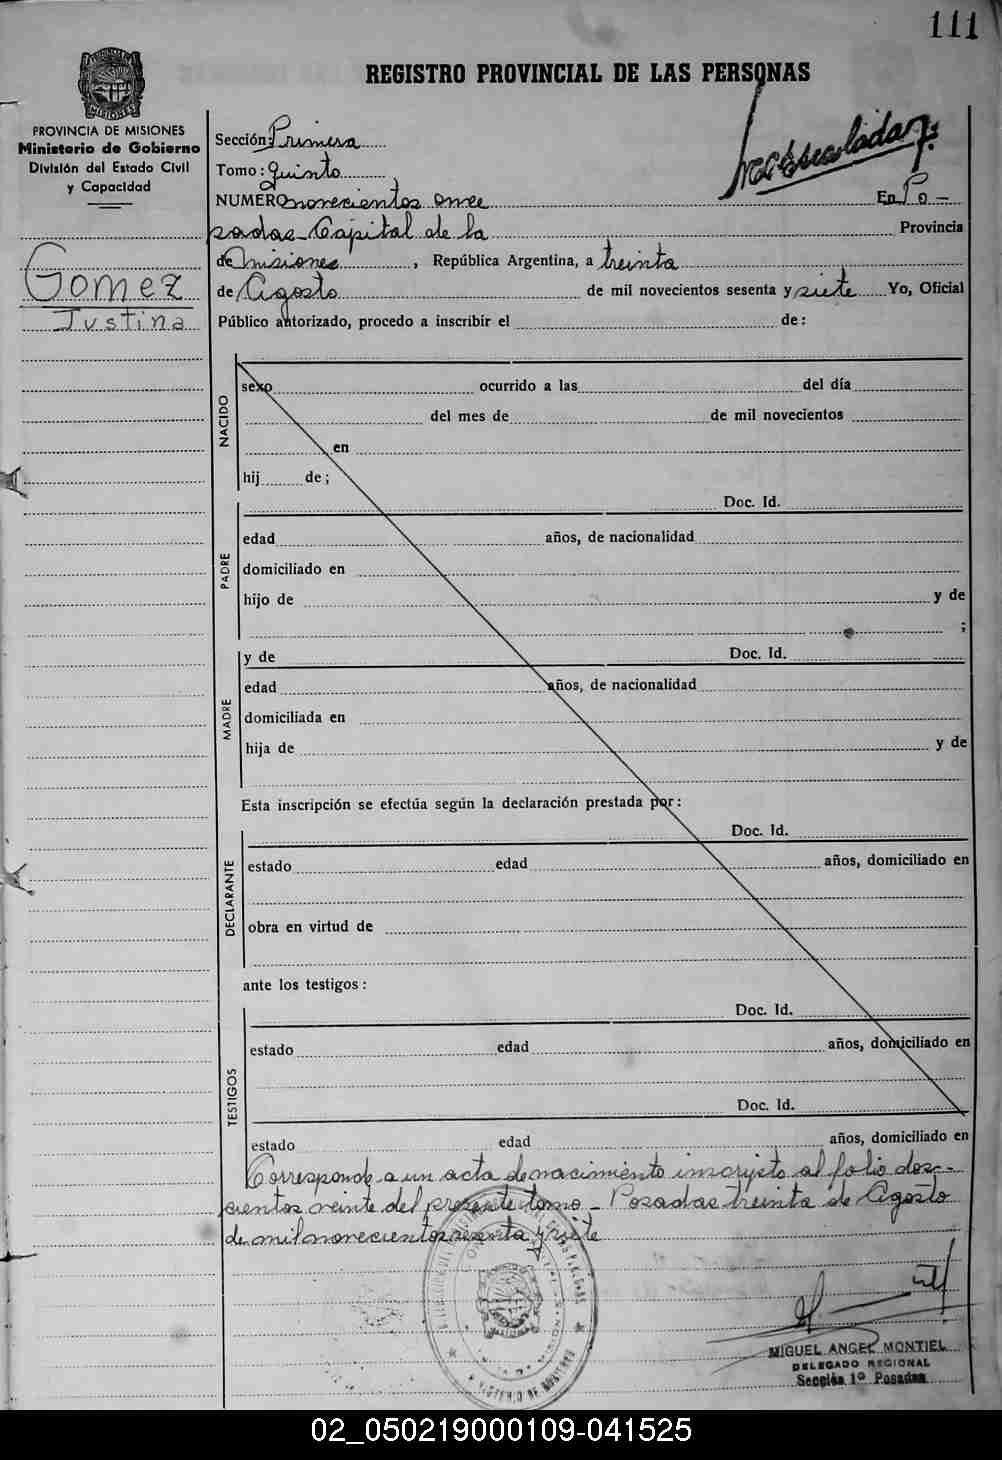 111
REGISTRO PROVINCIAL DE LAS PERSONAS
PROVINCIA DE MISIONES
Ministerio de Gobierno
División del Estado Civil
y Capacidad
Gomez
Justina
Sección: Primera
Tomo: Quinto
NUMERO novecientos once En Po-
sadas Capital de la Provincia
de Misiones, República Argentina, a treinta
de Agosto de mil novecientos sesenta y siete Yo, Oficial
Público autorizado, procedo a inscribir el de:
NACIDO
sexo ocurrido a las del día
del mes de de mil novecientos
en
hij de;
PADRE
Doc. Id.
edad años, de nacionalidad
domiciliado en
hijo de y de
;
MADRE
y de Doc. Id.
edad años, de nacionalidad
domiciliada en
hija de y de
Esta inscripción se efectúa según la declaración prestada por:
DECLARANTE
Doc. Id.
estado edad años, domiciliado en
obra en virtud de
ante los testigos:
TESTIGOS
Doc. Id.
estado edad años, domiciliado en
Doc. Id.
estado edad años, domiciliado en
Corresponde a un acta de nacimiento inscripto al folio dos-
cientos veinte del presente tomo - Posadas treinta de Agosto
de mil novecientos sesenta y siete
MIGUEL ANGEL MONTIEL
DELEGADO REGIONAL
Sección 1º Posadas
02_050219000109-041525